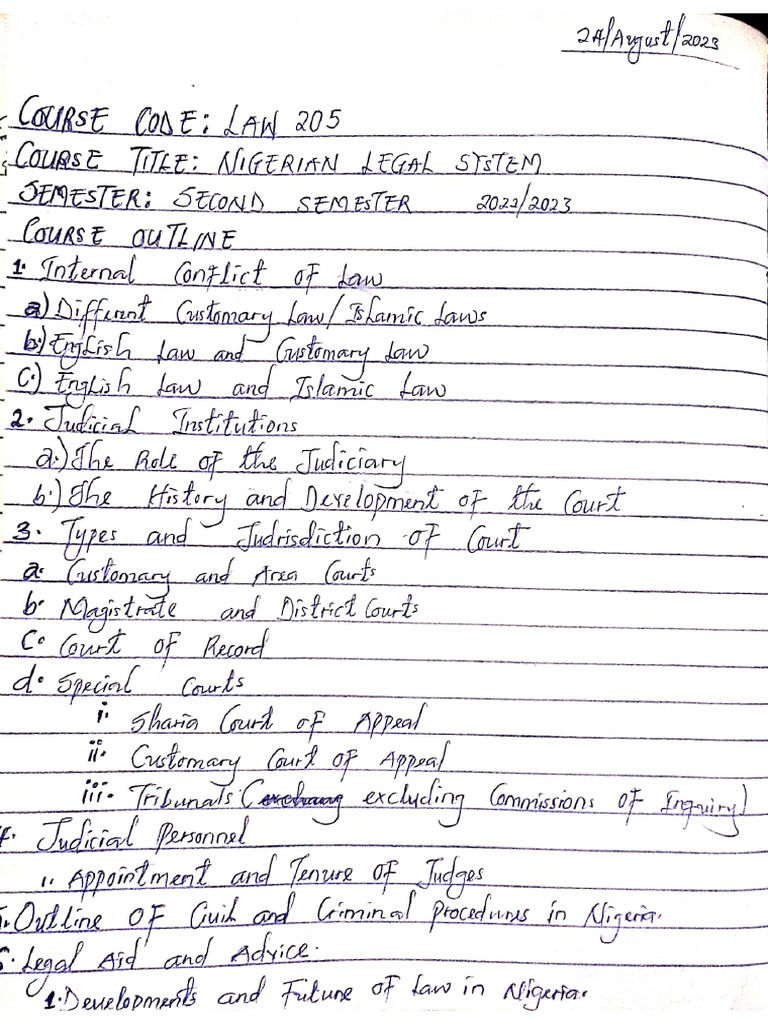 24/August/2023
COURSE CODE: LAW 205
COURSE TITLE: NIGERIAN LEGAL SYSTEM
SEMESTER: SECOND SEMESTER 2022/2023
COURSE OUTLINE
1. Internal Conflict of Law
a) Different Customary Law/Islamic Laws
b) English Law and Customary Law
C) English Law and Islamic Law
2. Judicial Institutions
a.) The Role of the Judiciary
b.) The History and Development of the Court
3. Types and Judrisdiction of Court
a. Customary and Area Courts
b. Magistrate and District Courts
C. Court of Record
d. Special Courts
i. Sharia Court of Appeal
ii. Customary Court of Appeal
iii. Tribunals (excluding Commissions of Inquiry)
4. Judicial Personnel
1. Appointment and Tenure of Judges
5. Outline of Civil and Criminal Procedures in Nigeria.
6. Legal Aid and Advice.
1. Developments and Future of Law in Nigeria.